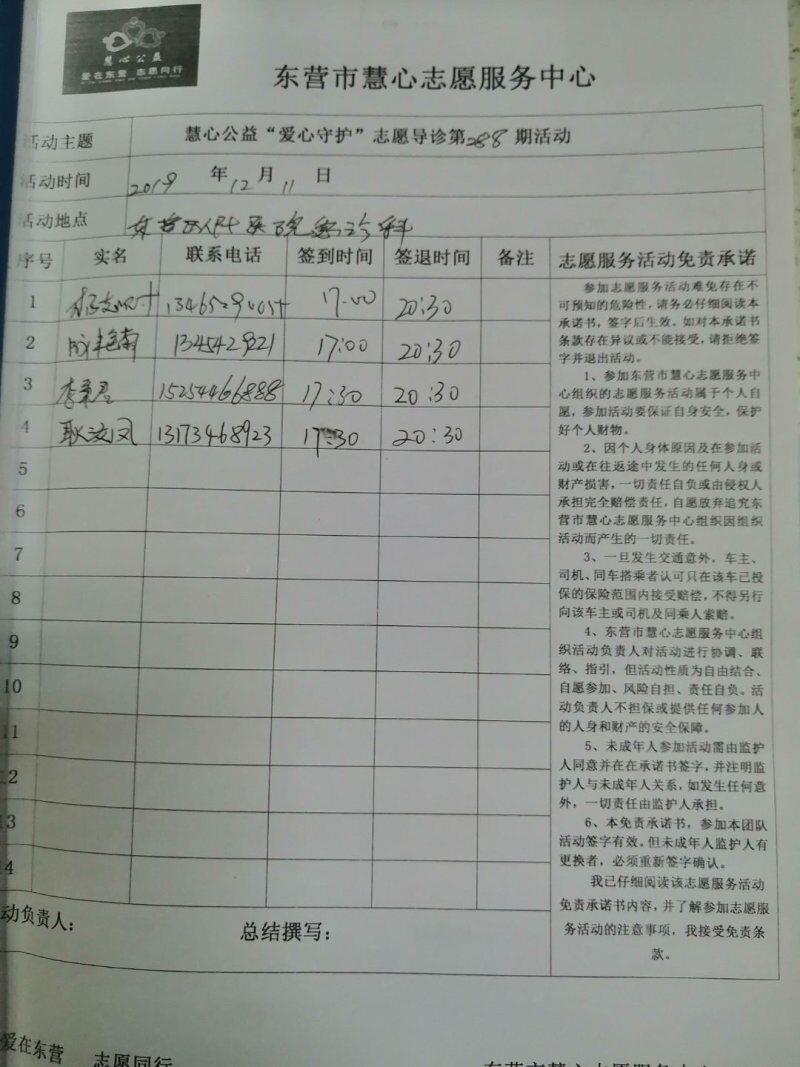 慧心公益
爱在东营 志愿同行
东营市慧心志愿服务中心
活动主题 慧心公益“爱心守护”志愿导诊第288期活动
活动时间 2019年12月11日
活动地点
序号 实名 联系电话 签到时间 签退时间 备注 志愿服务活动免责承诺
1 17:00 20:30
2 1345429821 17:00 20:30
3 15254466888 17:30 20:30
4 耿凌凤 13173468923 17:30 20:30
5
6
7
8
9
10
11
12
13
14
参加志愿服务活动难免存在不
可预知的危险性,请务必仔细阅读本
承诺书,签字后生效。如对本承诺书
条款存在异议或不能接受,请拒绝签
字并退出活动。
1、参加东营市慧心志愿服务中
心组织的志愿服务活动属于个人自
愿,参加活动要保证自身安全,保护
好个人财物。
2、因个人身体原因及在参加活
动或在往返途中发生的任何人身或
财产损害,一切责任自负或由侵权人
承担完全赔偿责任,自愿放弃追究东
营市慧心志愿服务中心组织因组织
活动而产生的一切责任。
3、一旦发生交通意外,车主、
司机、同车搭乘者认可只在该车已投
保的保险范围内接受赔偿,不得另行
向该车主或司机及同乘人索赔。
4、东营市慧心志愿服务中心组
织活动负责人对活动进行协调、联
络、指引,但活动性质为自由结合、
自愿参加、风险自担、责任自负。活
动负责人不担保或提供任何参加人
的人身和财产的安全保障。
5、未成年人参加活动需由监护
人同意并在在承诺书签字,并注明监
护人与未成年人关系,如发生任何意
外,一切责任由监护人承担。
6、本免责承诺书,参加本团队
活动签字有效。但未成年人监护人有
更换者,必须重新签字确认。
我已仔细阅读该志愿服务活动
免责承诺书内容,并了解参加志愿服
务活动的注意事项,我接受免责条
款。
动负责人: 总结撰写:
爱在东营 志愿同行 东营市慧心志愿服务中心